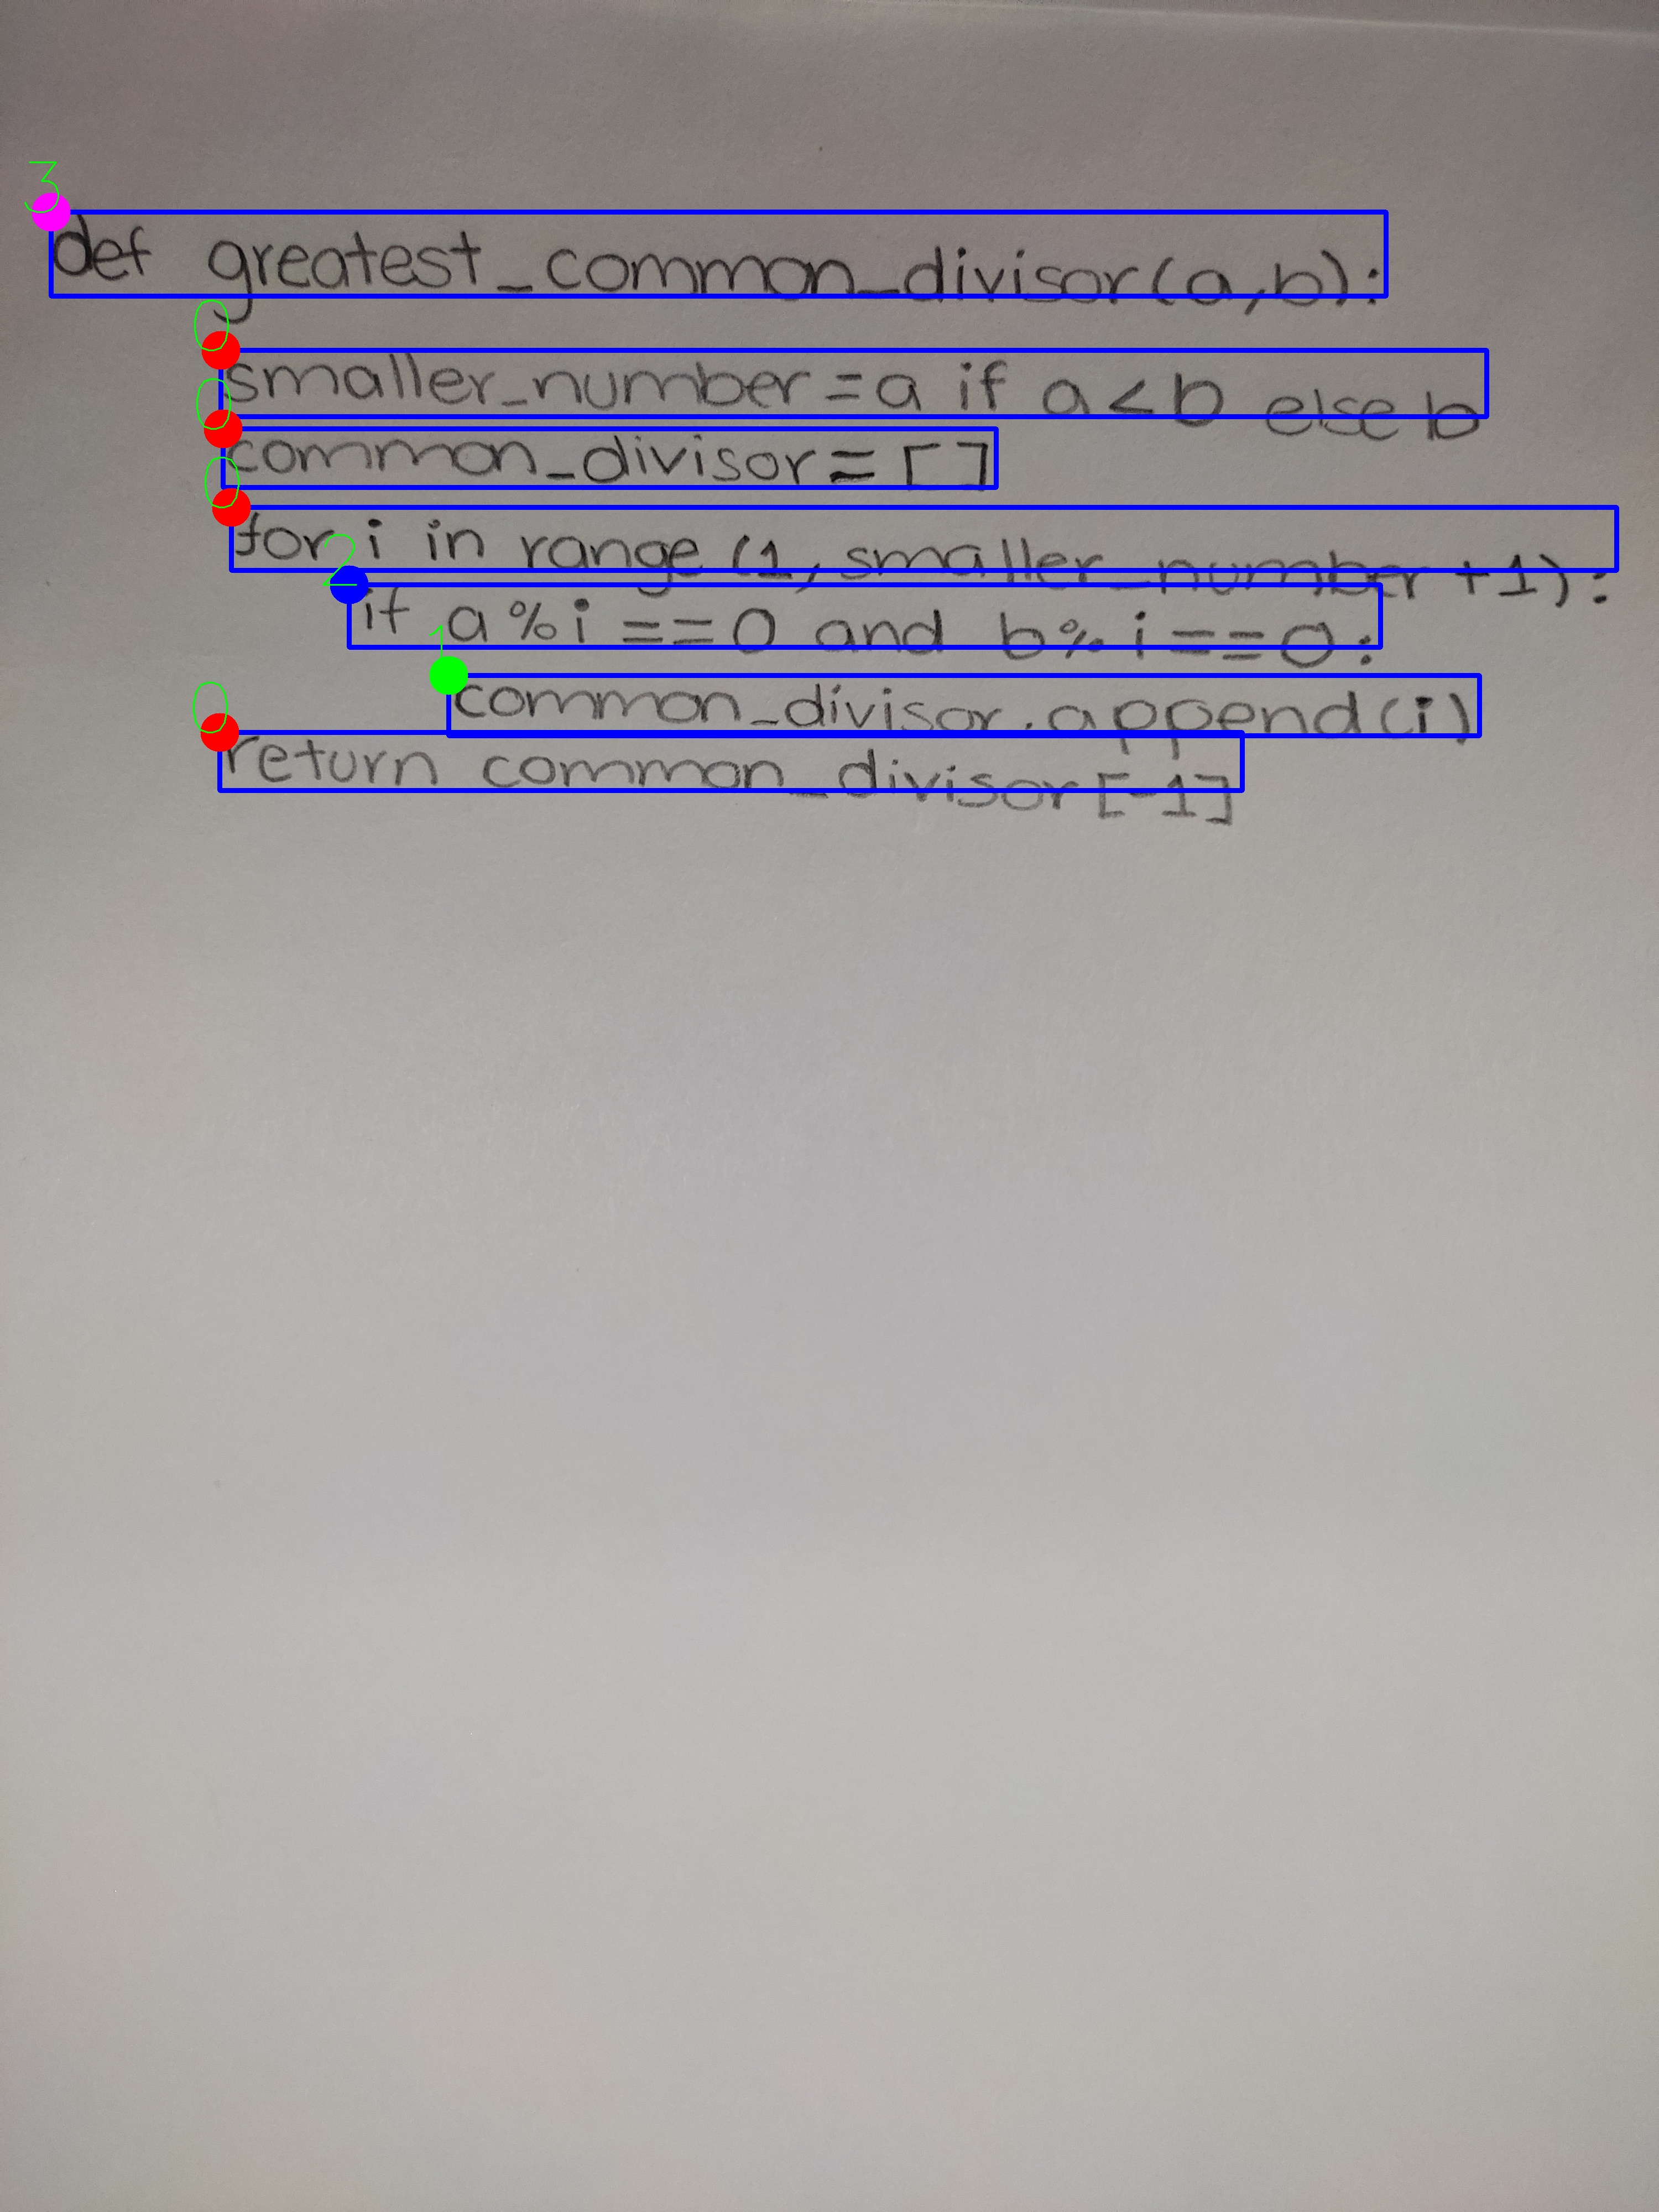 3
def greatest_common_divisor(a,b):
0
smaller_number=a if a<b else b
0
common_divisor=[]
0
for i in range(1, smaller_number+1):
2
if a%i==0 and b%i==0:
1
common_divisor.append(i)
0
return common_divisor[-1]